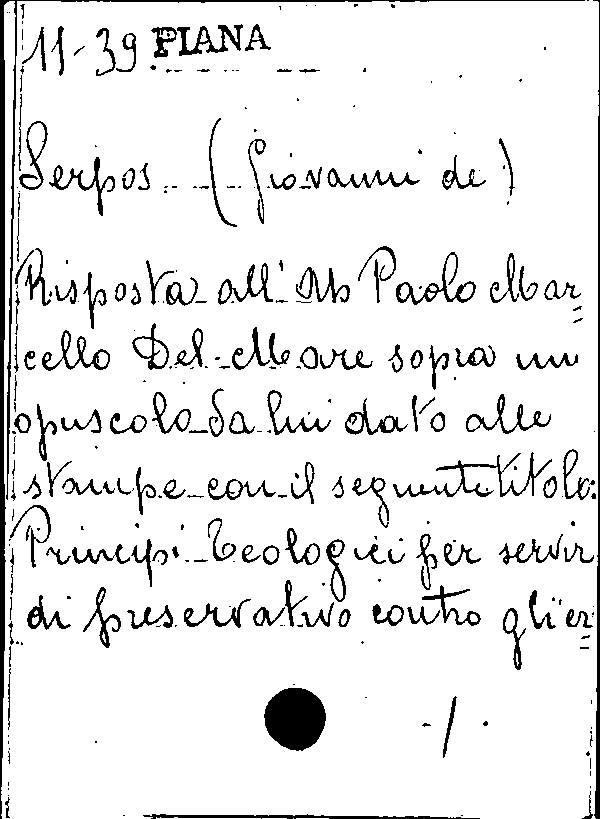 11-39 PIANA
Serpos (Giovanni de)
Risposta all' Ab Paolo Mar=
cello Del-Mare sopra un
opuscolo da lui dato alle
stampe con il seguente titolo:
Principi Teologici per servir
di preservativo contro gli er=
./.